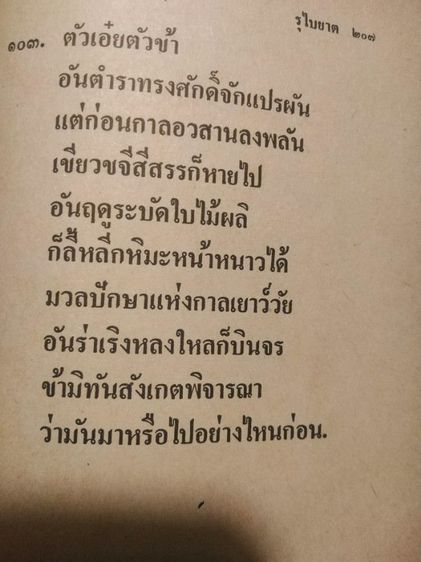 รุไบยาต ๒๐๗
๑๐๓. ตัวเอ๋ยตัวข้า
อันตำราทรงศักดิ์จักแปรผัน
แต่ก่อนกาลอวสานลงพลัน
เขียวขจีสีสรรก็หายไป
อันฤดูระบัดใบไม้ผลิ
ก็ลี้หลีกหิมะหน้าหนาวได้
มวลปักษาแห่งกาลเยาว์วัย
อันร่าเริงหลงใหลก็บินจร
ข้ามิทันสังเกตพิจารณา
ว่ามันมาหรือไปอย่างไหนก่อน.